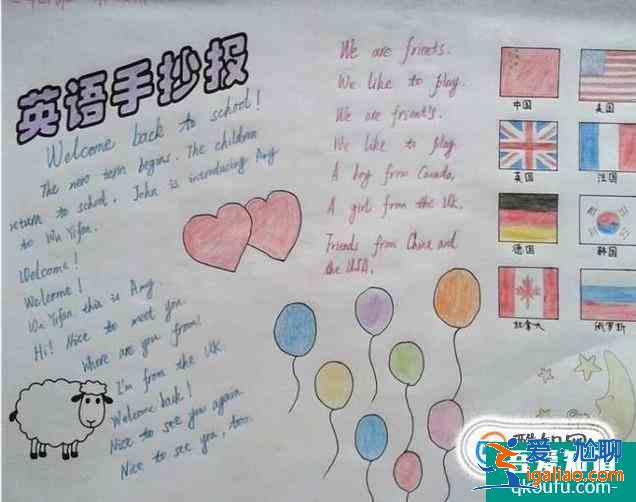 英语手抄报
Welcome back to school!
The new term begins. The children
return to school. John is introducing Amy
to Wu Yifan.
Welcome!
Welcome!
Wu Yifan this is Amy.
Hi! Nice to meet you.
Where are you from?
I'm from the UK.
Welcome back!
Nice to see you again.
Nice to see you, too.
We are frinets.
We like to play.
We are frient's.
We like to play
A boy from Canada,
A girl from the UK.
Friends from China and
the USA.
中国
美国
英国
法国
德国
韩国
加拿大
俄罗斯
爱尬聊
igaliao.com